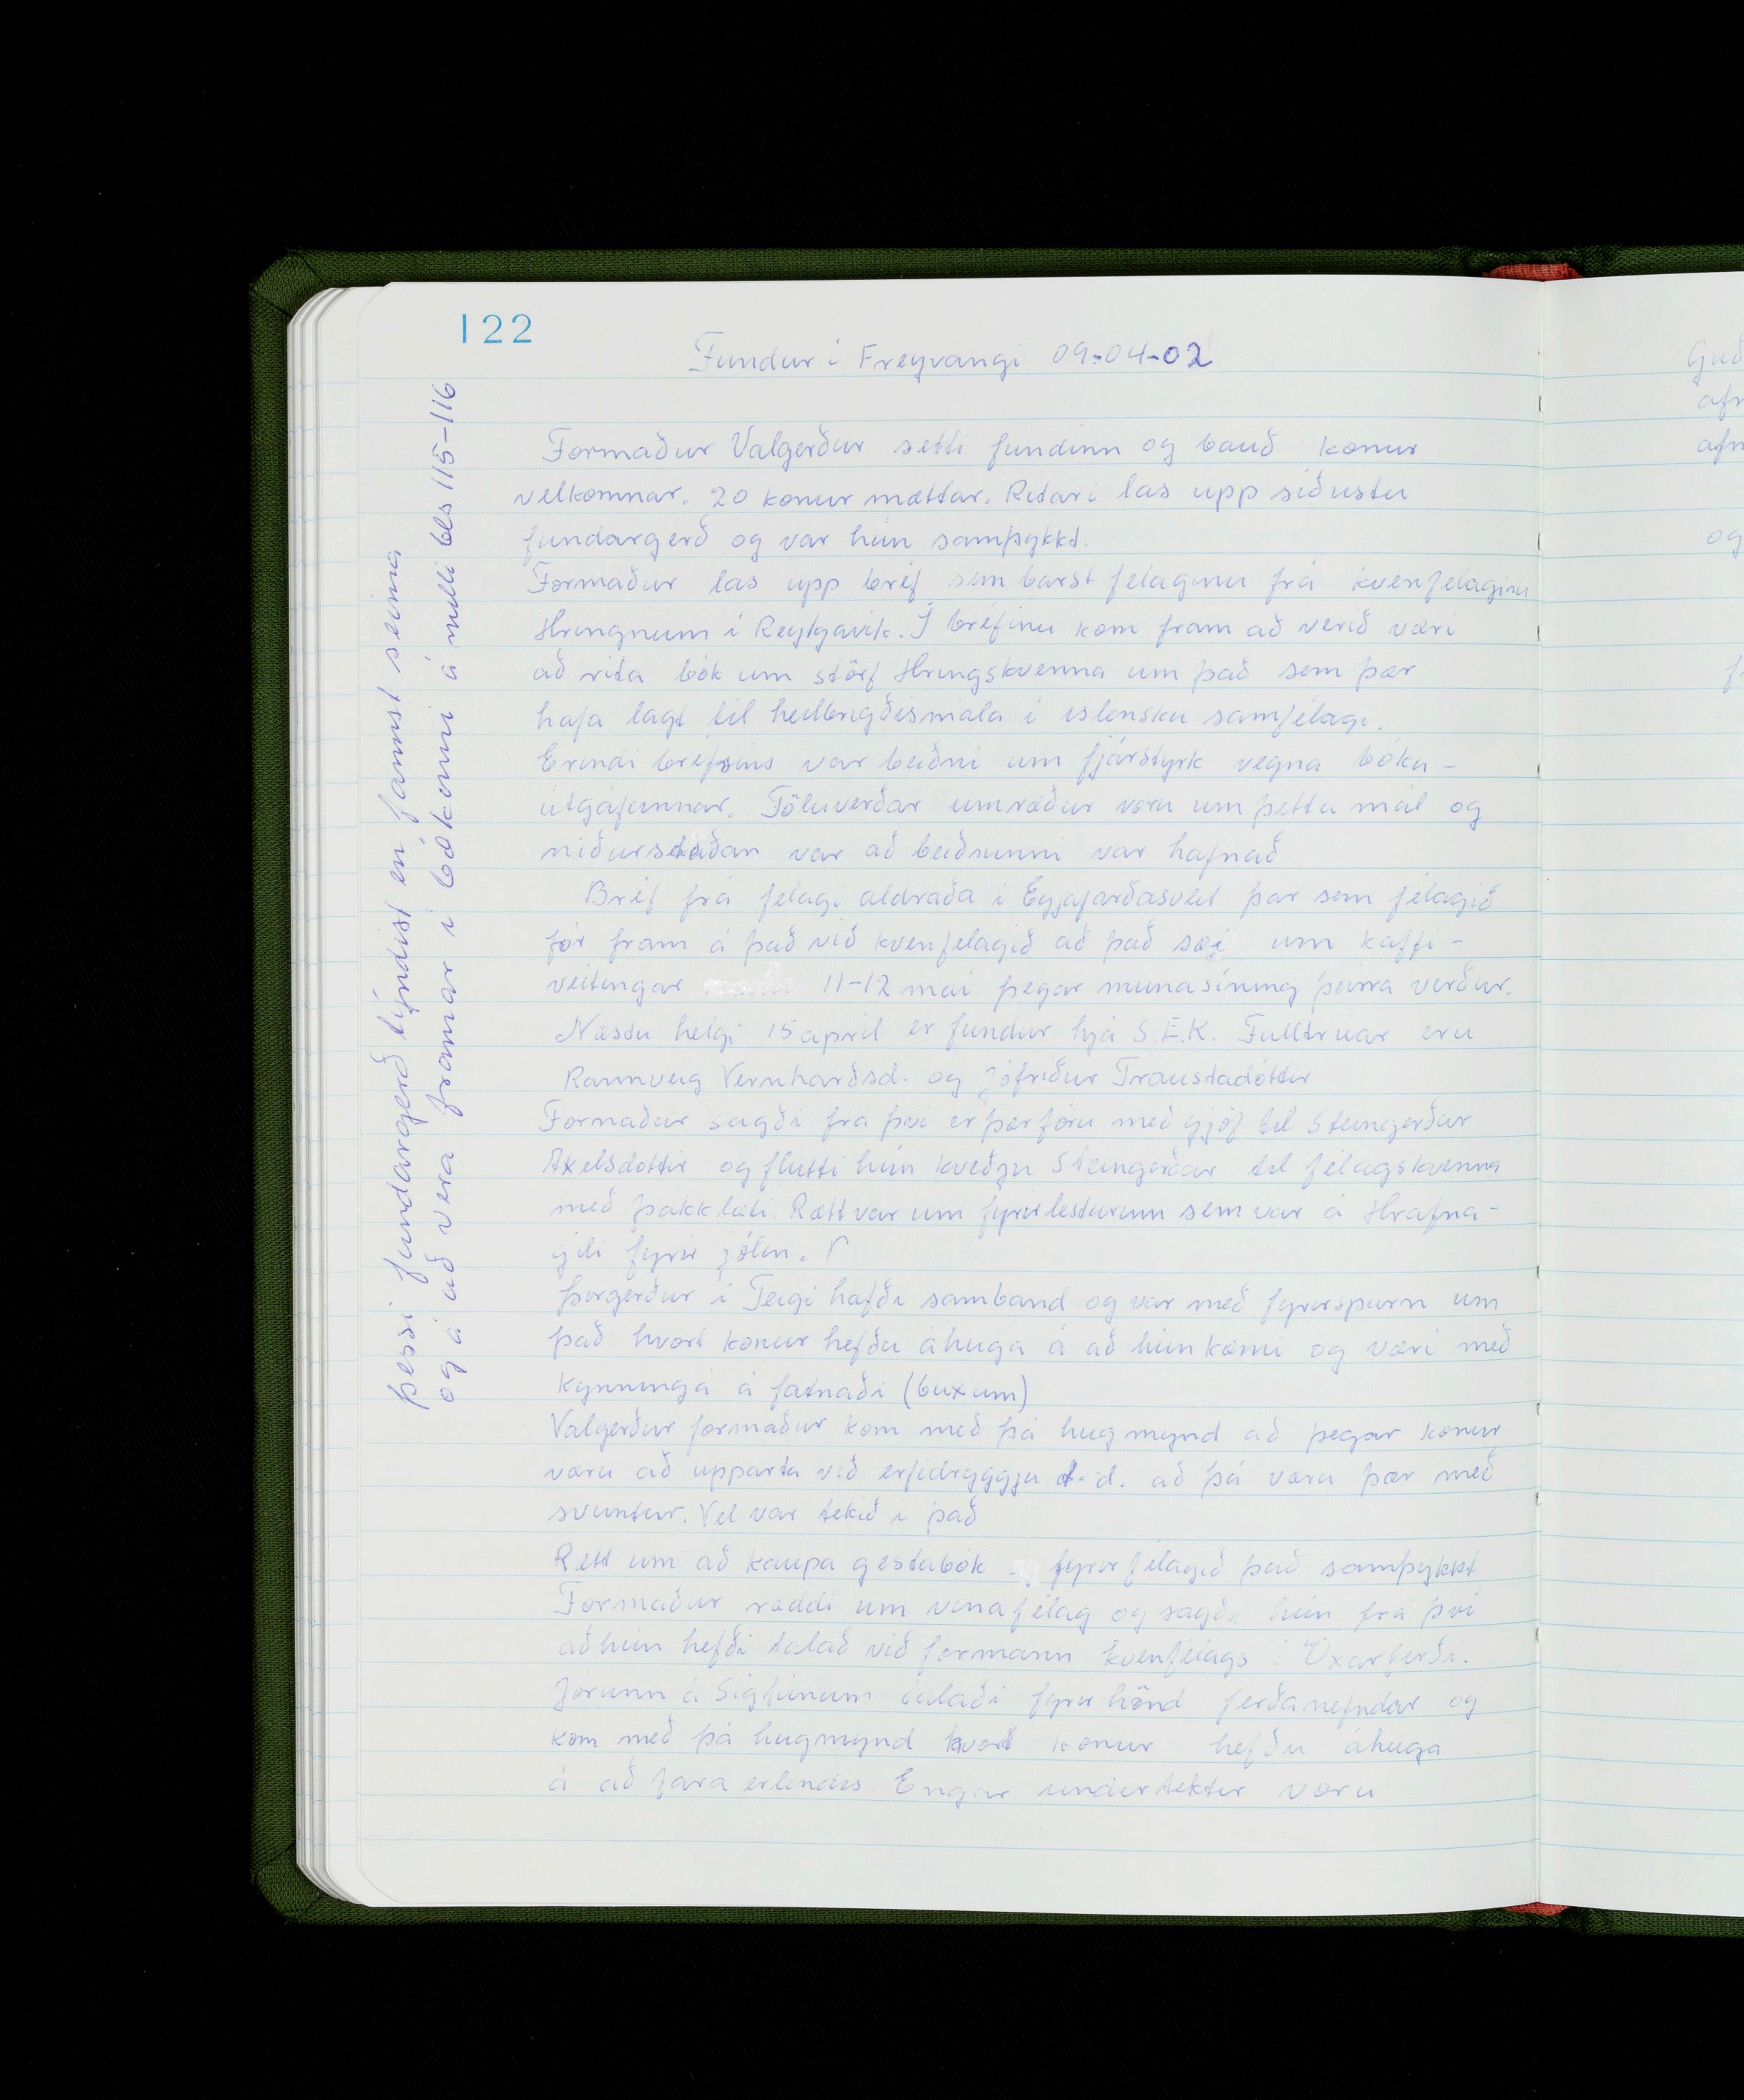 122
Fundur í Freyvangi 09-04-02
Formaður Valgerður setti fundinn og bauð konur
velkomnar. 20 konur mættar. Ritari las upp síðustu
fundargerð og var hún samþykkt.
Formaður las upp bréf sem barst félaginu frá kvenfélaginu
Hringnum í Reykjavík. Í bréfinu kom fram að verið væri
að rita bók um störf Hringskvenna um það sem þær
hafa lagt til heilbrigðismála í íslensku samfélagi.
Erindi bréfsins var beiðni um fjárstyrk vegna bóka-
útgáfunnar. Töluverðar umræður voru um þetta mál og
niðurstaðan var að beiðninni var hafnað
Bréf frá félagi aldraða í Eyjafarðasveit þar sem félagið
fór fram á það við kvenfélagið að það sæi um kaffi-
veitingar 11-12 maí þegar munasíning þeirra verður.
Næstu helgi 15 apríl er fundur hjá S.E.K. Fulltrúar eru
Rannveig Vernharðsd. og Jófríður Traustadóttir
Formaður sagði frá því er þær fóru með gjöf til Steingerðar
Axelsdóttir og flutti hún kveðju Steingerðar til félagskvenna
með þakklæti. Rætt var um fyrirlesturinn sem var á Hrafna-
gili fyrir jólin.
Þorgerður í Teigi hafði samband og var með fyrirspurn um
það hvort konur hefðu áhuga á að hún kæmi og væri með
kynninga á fatnaði (buxum)
Valgerður formaður kom með þá hugmynd að þegar konur
væru að upparta við erfidryggju t.d. að þá væru þær með
svuntur. Vel var tekið í það
Rætt um að kaupa gestabók fyrir félagið það samþykkt
Formaður ræddi um vinafélag og sagði hún frá því
að hún hefði talað við formann kvenfélags í Öxarfirði.
Jórunn á Sigtúnum talaði fyrir hönd ferðanefndar og
kom með þá hugmynd hvort konur hefðu áhuga
á að fara erlendis. Engar undirtektir voru
þessi fundargerð týndist en fannst seinna
og á að vera framar í bókinni á milli bls 115-116
Guð
afr
afn
og